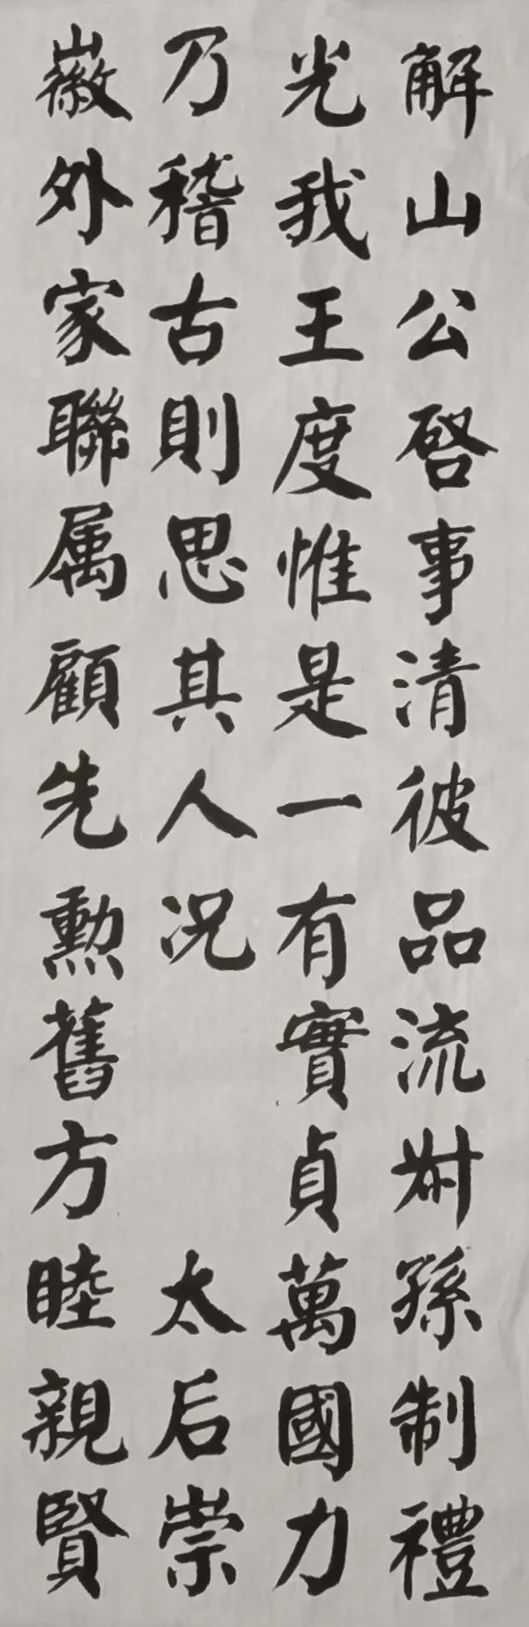 解山公啓事清彼品流叔孫制禮
光我王度惟是一有實貞萬國力
乃稽古則思其人况 太后崇
徽外家聯属顧先勳舊方睦親賢